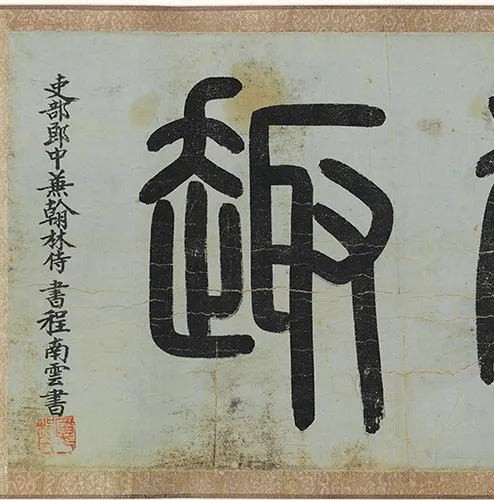 趣
吏部郎中兼翰林侍書程南雲書